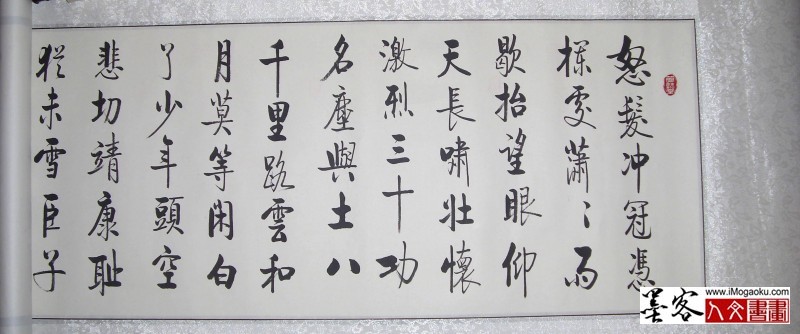 怒髮冲冠憑
欄處蕭〻雨
歇抬望眼仰
天長嘯壯懷
激烈三十功
名塵與土八
千里路雲和
月莫等閑白
了少年頭空
悲切靖康恥
猶未雪臣子
墨客
www.iMogaoku.com
人文書畫